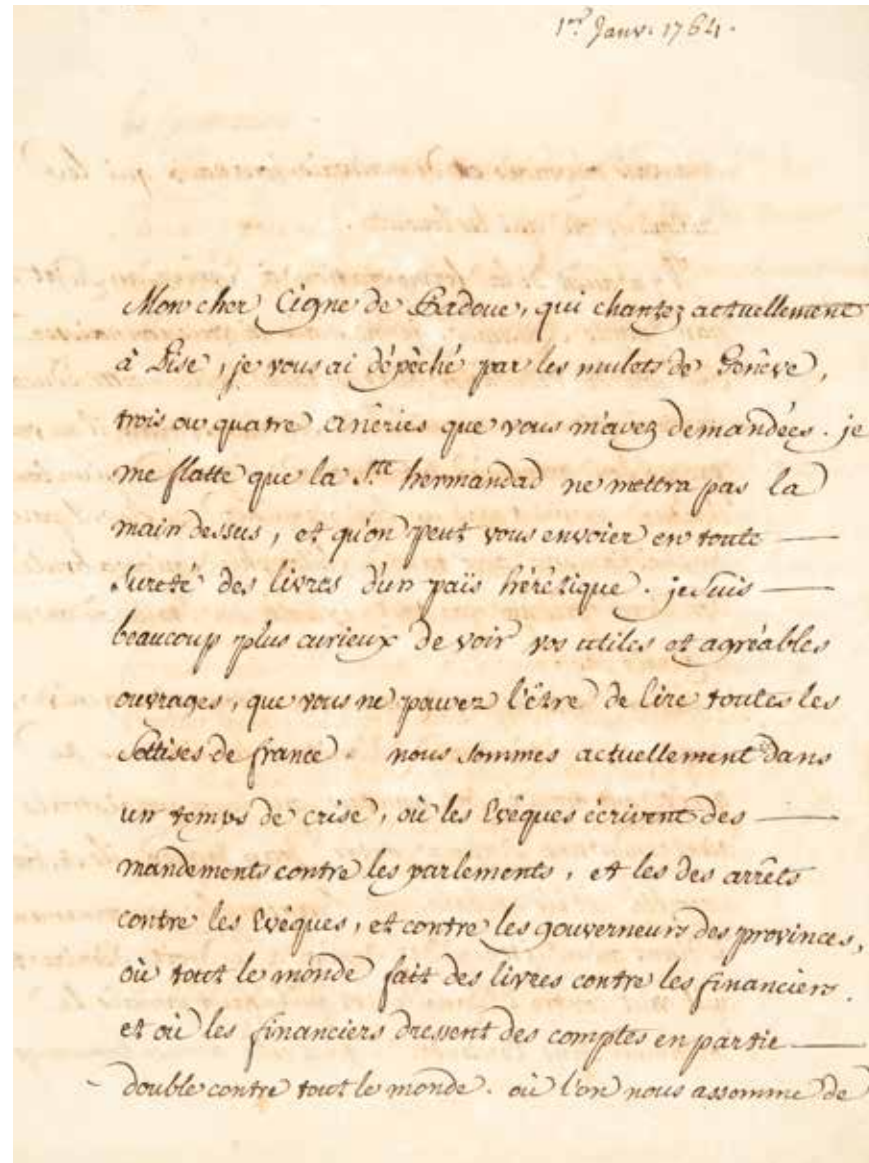 1.er Janv. 1764.
Mon cher Cigne de Padoue, qui chantez actuellement
à Pise, je vous ai dépêché par les mulets de Genêve,
trois ou quatre anêries que vous m'avez demandées. je
me flatte que la S.te hermandad ne mettra pas la
main dessus, et qu'on peut vous envoier en toute
Sureté des livres d'un païs hérêtique. je suis
beaucoup plus curieux de voir vos utiles et agréables
ouvrages, que vous ne pouvez l'être de lire toutes les
Sottises de france. nous sommes actuellement dans
un temps de crise, où les Evêques écrivent des
mandements contre les parlements, et les des arrêts
contre les Evêques, et contre les gouverneurs des provinces,
où tout le monde fait des livres contre les financiers.
et où les financiers dressent des comptes en partie
double contre tout le monde. où l'on nous assomme de